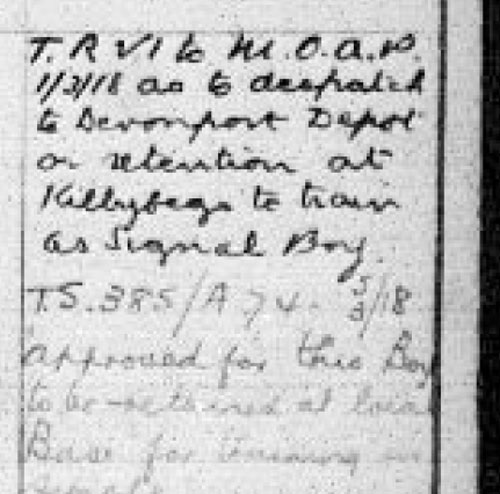 T. R VI to M.O.a.P.
1/3/18 as to despatch
to Devonport Depot
or retention at
Killybegs to train
as Signal Boy.
T.S. 385/A 74. 5/3/18
Approved for this Boy
to be retained at local
Base for training in